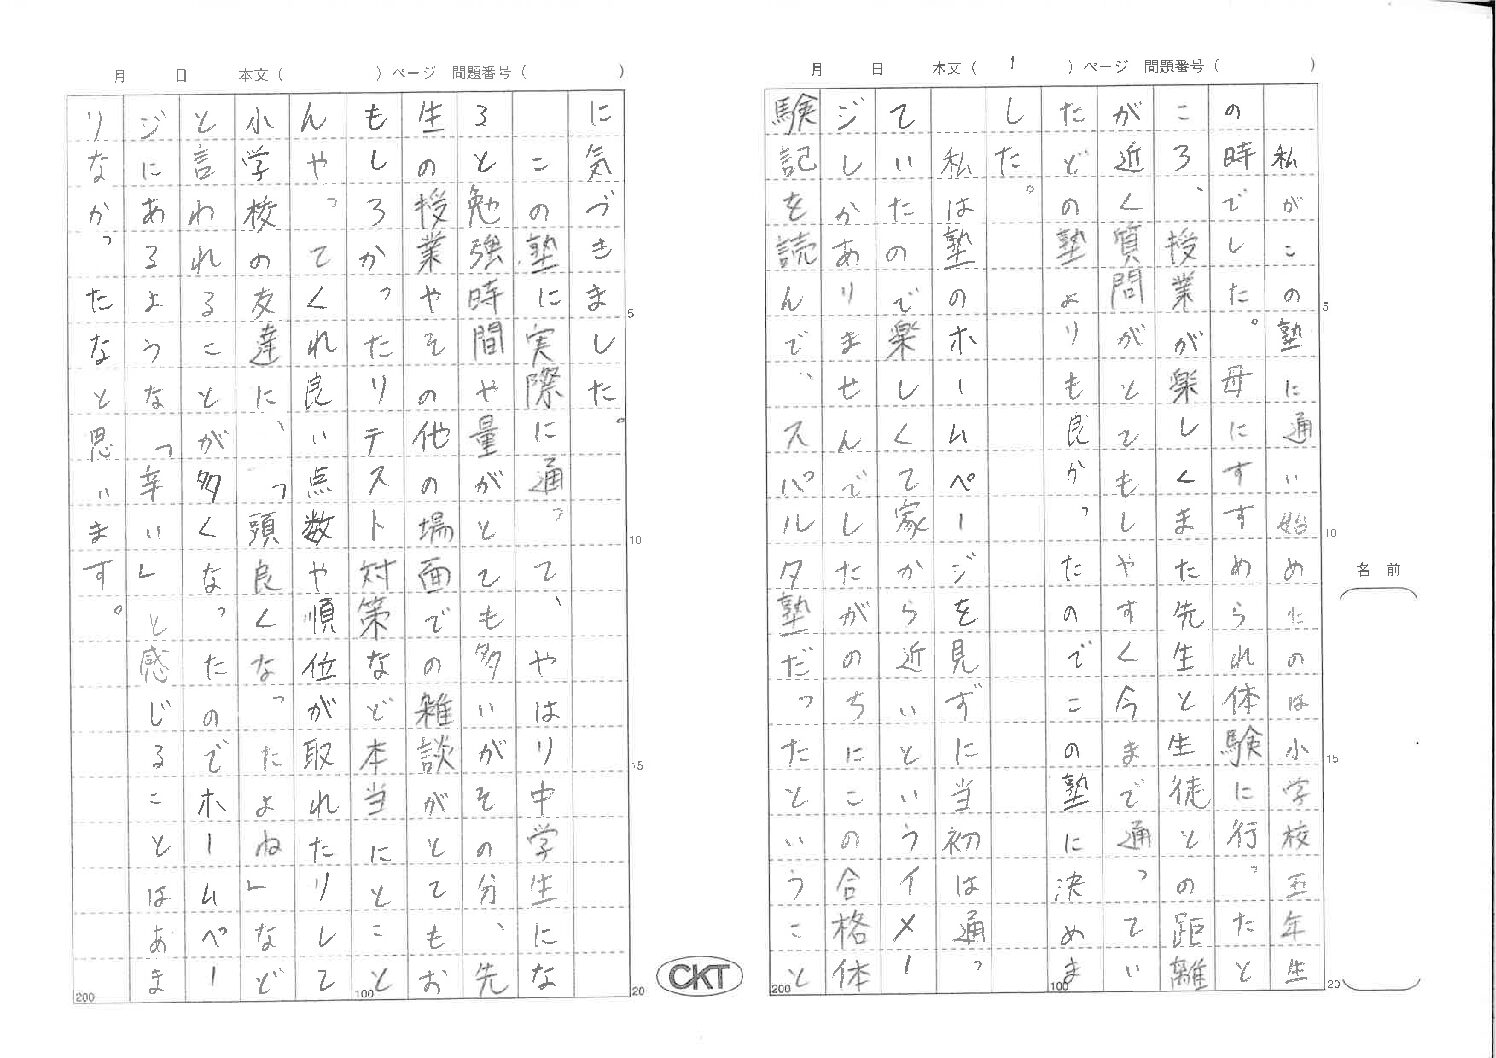 月 日 本文( 1 )ページ 問題番号( )
私がこの塾に通い始めたのは小学校五年生
の時でした。母にすすめられ体験に行ったと
ころ、授業が楽しくまた先生と生徒との距離
が近く質問がとてもしやすく今まで通ってい
たどの塾よりも良かったのでこの塾に決めま
した。
私は塾のホームページを見ずに当初は通っ
ていたので楽しくて家から近いというイメー
ジしかありませんでしたがのちにこの合格体
験記を読んで、スパルタ塾だったということ
5
10
15
20
100
200
名前
CKT
月 日 本文( )ページ 問題番号( )
に気づきました。
この塾に実際に通って、やはり中学生にな
ると勉強時間や量がとても多いがその分、先
生の授業やその他の場面での雑談がとてもお
もしろかったりテスト対策など本当にとこと
んやってくれ良い点数や順位が取れたりして
小学校の友達に、「頭良くなったよね」など
と言われることが多くなったのでホームペー
ジにあるような「辛い」と感じることはあま
りなかったなと思います。
5
10
15
20
100
200